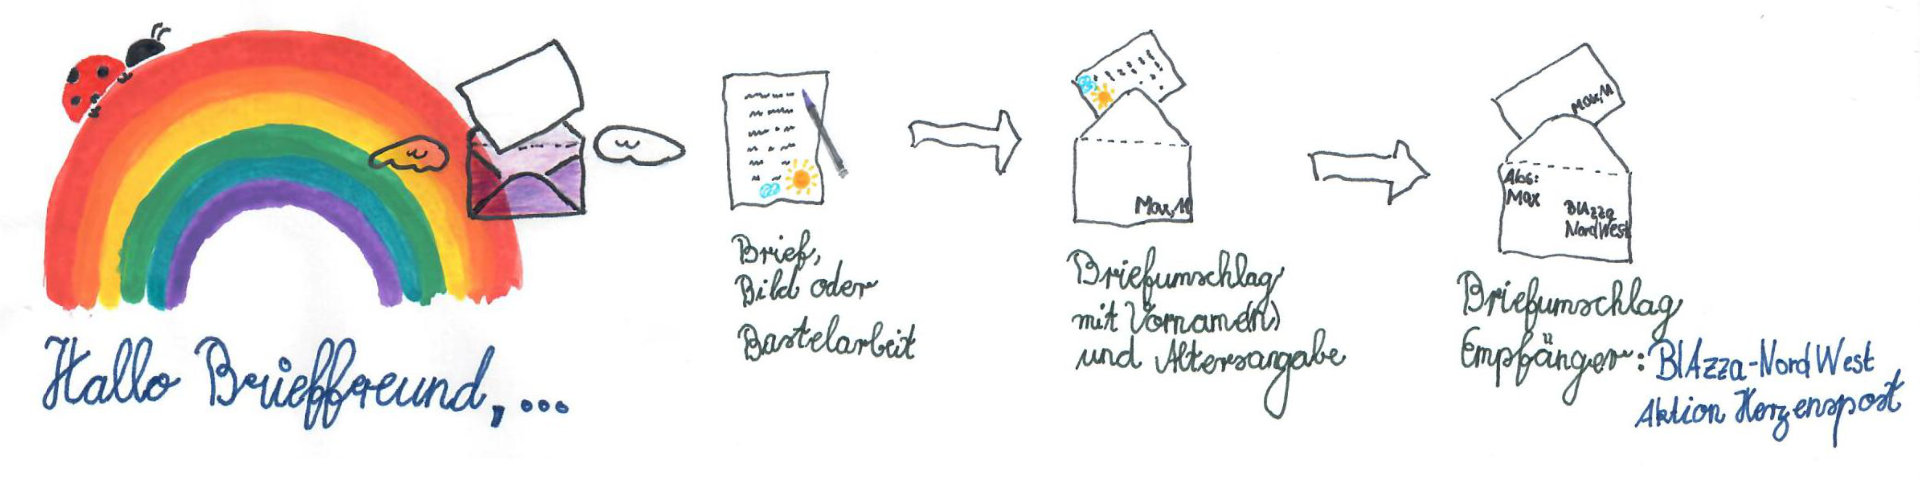 Hallo Brieffreund, ...
Brief,
Bild oder
Bastelarbeit
Max, 11
Briefumschlag
mit Vornamen
und Altersangabe
Max, 11
Abs:
Max
BIAzza
NordWest
Briefumschlag
Empfänger: BIAzza-NordWest
Aktion Herzenspost